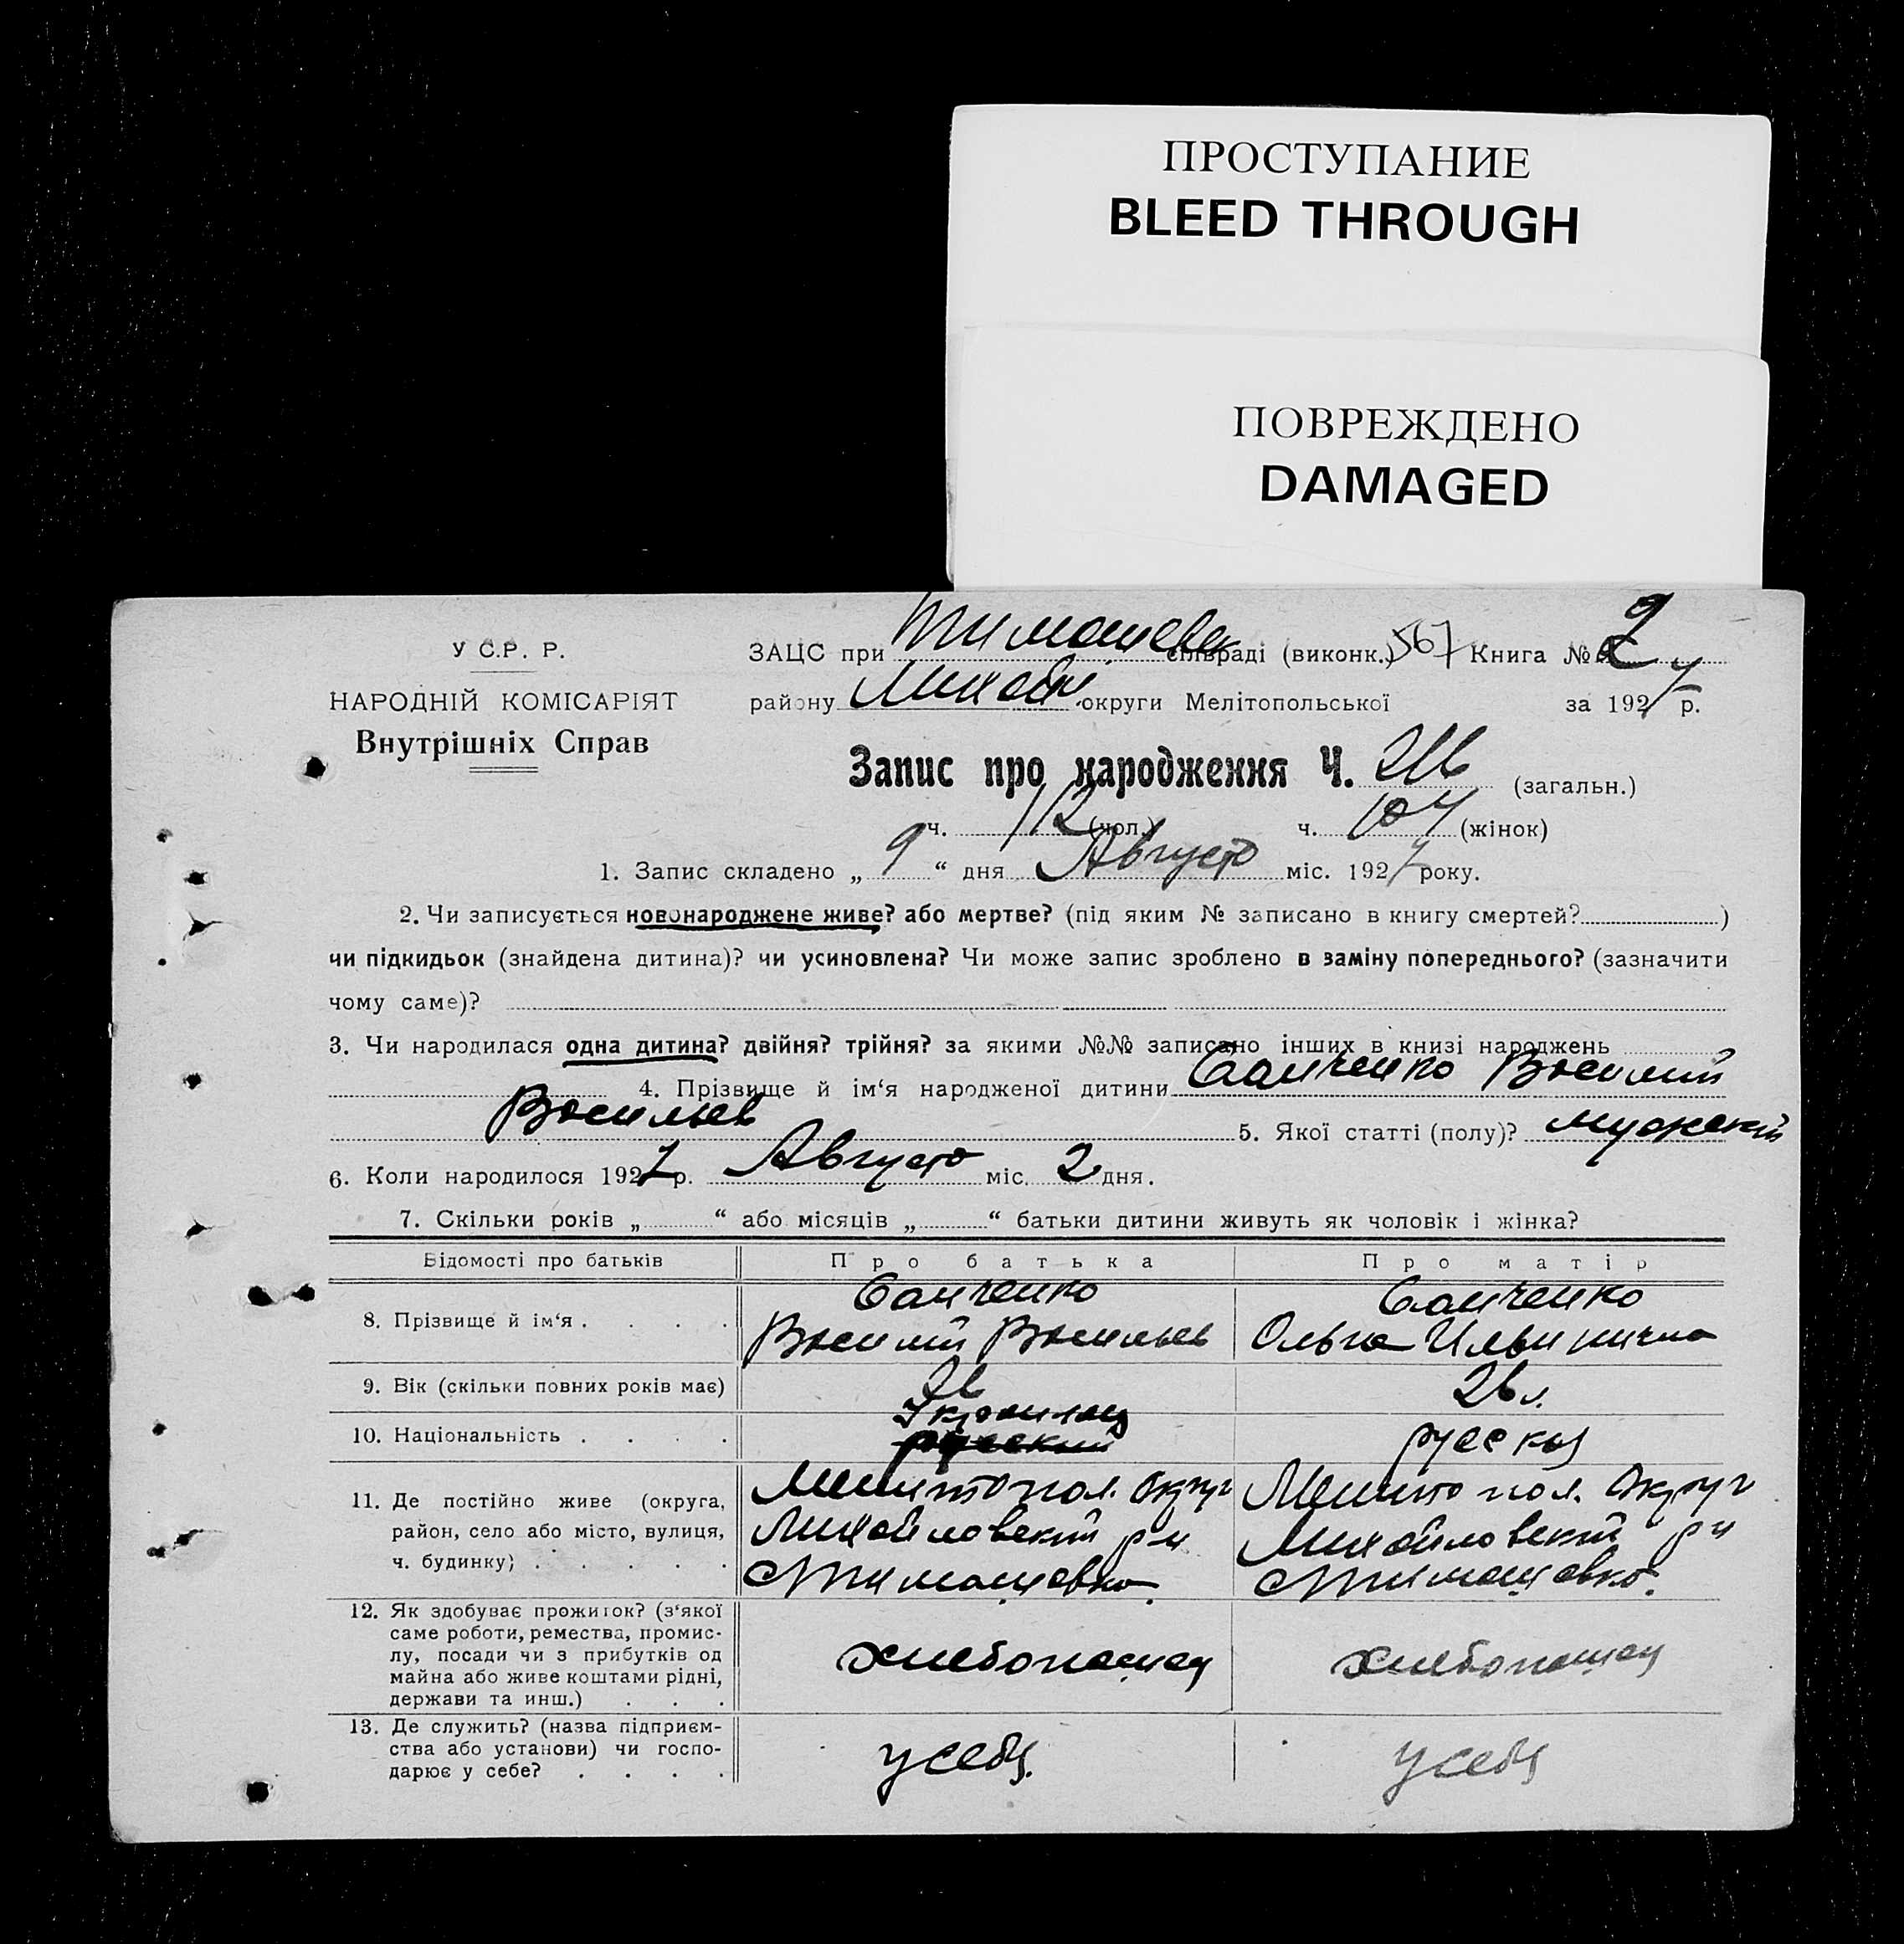 ПРОСТУПАНИЕ
BLEED THROUGH
ПОВРЕЖДЕНО
DAMAGED
У С.Р. Р.
НАРОДНІЙ КОМІСАРІЯТ
Внутрішніх Справ
ЗАЦС при Тимошевск сільраді (виконк.) 567 Книга № 2
району Михайл округи Мелітопольської за 1927 р.
Запис про народження Ч. 216 (загальн.)
ч. 112 (чол.) ч. 104 (жінок)
1. Запис складено „ 9 “ дня Августа міс. 1927 року.
2. Чи записується новонароджене живе? або мертве? (під яким № записано в книгу смертей? )
чи підкидьок (знайдена дитина)? чи усиновлена? Чи може запис зроблено в заміну попереднього? (зазначити
чому саме)?
3. Чи народилася одна дитина? двійня? трійня? за якими №№ записано інших в книзі народжень
4. Прізвище й ім‘я народженої дитини Василий
Васильев 5. Якої статті (полу)? мужский
6. Коли народилося 1927 р. Августа міс. 2 дня.
7. Скільки років „ “ або місяців „ “ батьки дитини живуть як чоловік і жінка?
Відомості про батьків Про батька Про матір
8. Прізвище й ім‘я . . . .
Василий Васильев Ольга Ильинична
9. Вік (скільки повних років має) 26 26 л.
10. Національність . . . . Украинец русский русская
11. Де постійно живе (округа, район, село або місто, вулиця, ч. будинку) . . . . .
Мелитопол. Округ Мелитопол. Округ
Михайловский р-н Михайловский р-н
Тимошовка Тимошовка.
12. Як здобуває прожиток? (з‘якої
саме роботи, ремества, промис-
лу, посади чи з прибутків од
майна або живе коштами рідні,
держави та инш.) . . .
хлебопашец хлебопашец
13. Де служить? (назва підприєм-
ства або установи) чи госпо-
дарює у себе? . . . .
у себя. у себя